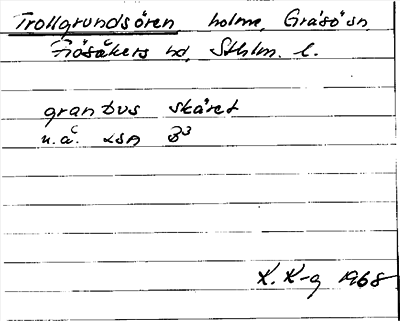 Trollgrundsören holme, Gräsö sn,
Frösåkers hd, Sthlm. l.
granbus skäret
u.å. LSA B3
K. K-g 1968